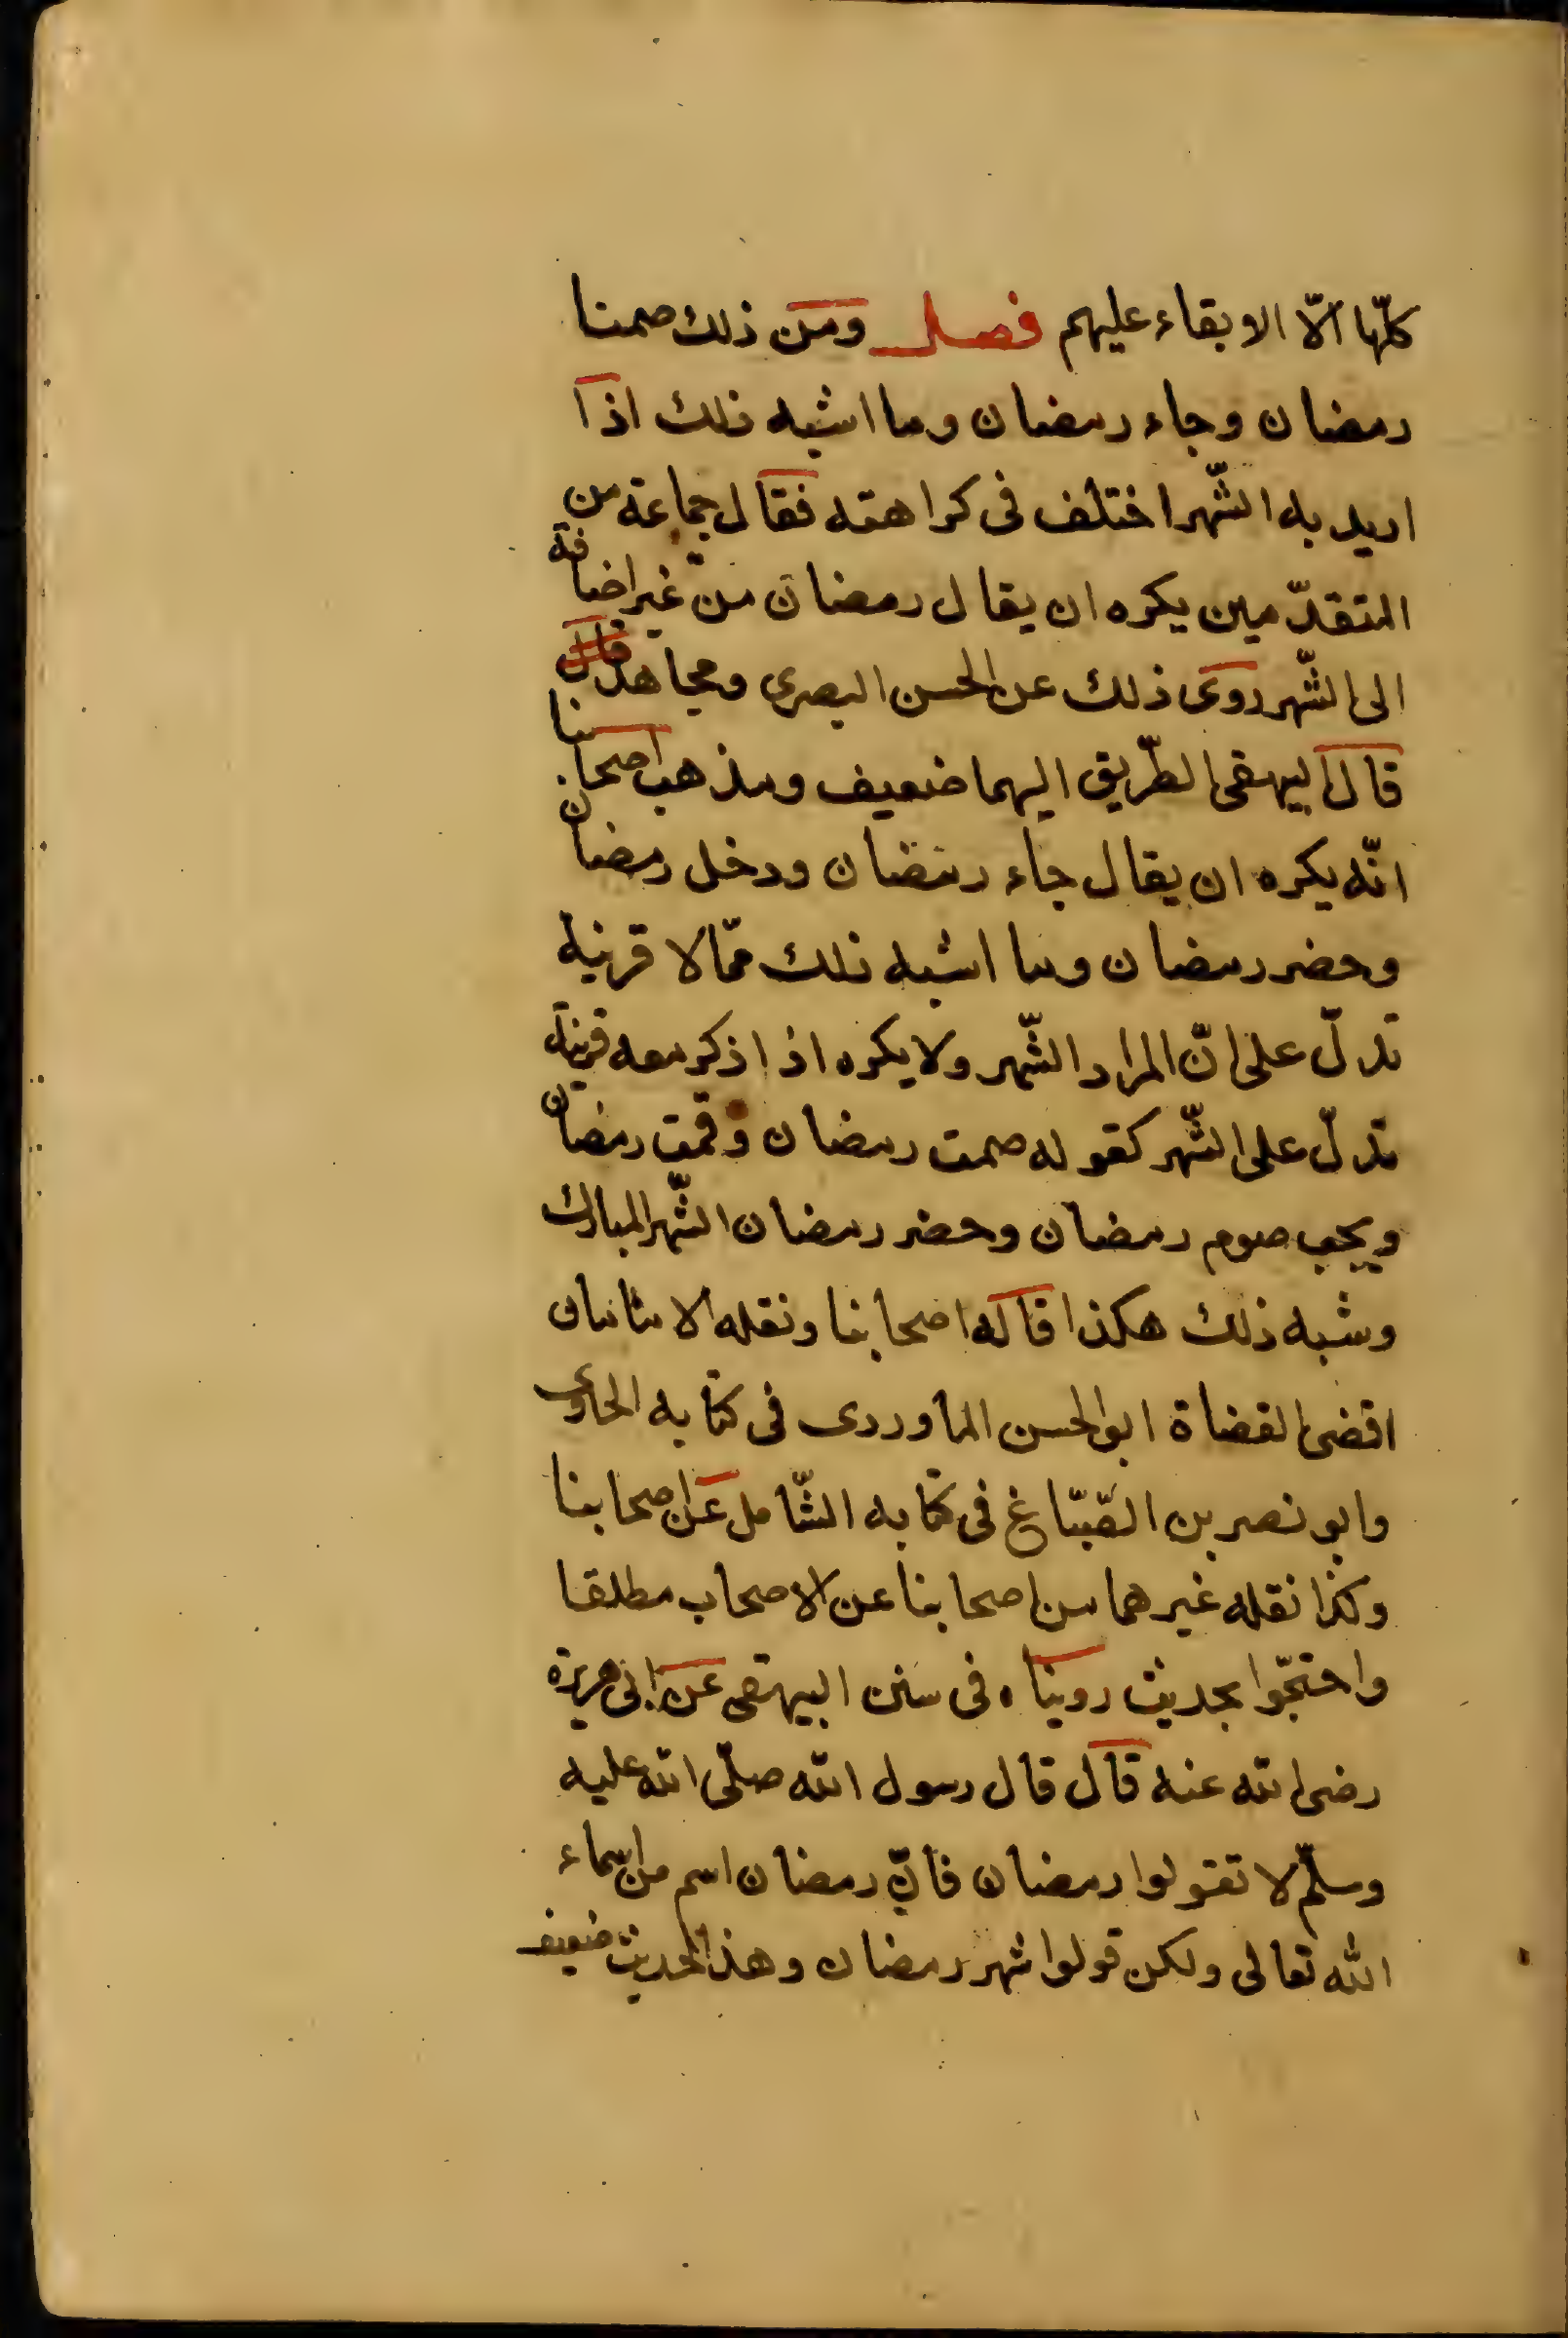 كلّها الّا الابقاء عليهم فصل ومن ذلك صمنا
رمضان وجاء رمضان وما اشبه ذلك اذا
اريد به الشّهر اختلف فى كراهته فقال جماعة من
المتقدّمين يكره ان يقال رمضان من غير اضافة
الى الشّهر روى ذلك عن الحسن البصرى ومجاهد قال
قال البيهقى الطّريق اليهما ضعيف ومذهب اصحابنا
انّه يكره ان يقال جاء رمضان ودخل رمضان
وحضر رمضان وما اشبه ذلك ممّا لا قرينة
تدلّ على انّ المراد الشّهر ولا يكره اذا ذكر معه قرينة
تدلّ على الشّهر كقوله صمت رمضان وقمت رمضان
ويجب صوم رمضان وحضر رمضان الشّهر المبارك
وشبه ذلك هكذا قاله اصحابنا ونقله الامامان
اقضى القضاة ابو الحسن الماوردى فى كتابه الحاوى
وابو نصر بن الصّبّاغ فى كتابه الشّامل عن اصحابنا
وكذا نقله غيرهما من اصحابنا عن الاصحاب مطلقا
واحتجّوا بحديث رويناه فى سنن البيهقى عن ابى هريرة
رضى الله عنه قال قال رسول الله صلّى الله عليه
وسلّم لا تقولوا رمضان فانّ رمضان اسم من اسماء
الله تعالى ولكن قولوا شهر رمضان وهذا الحديث ضعيف